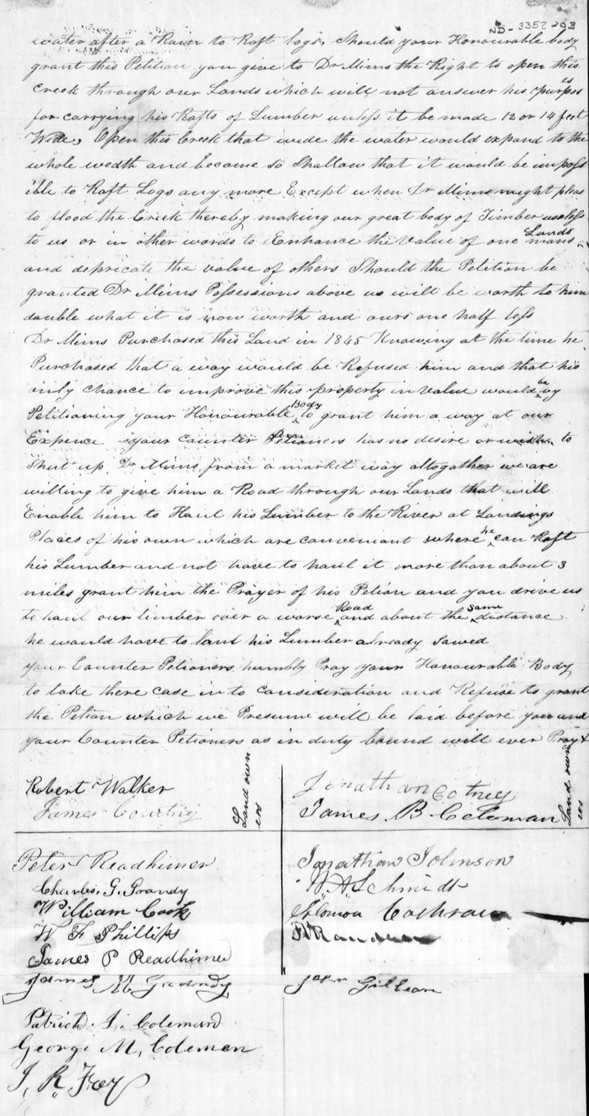 ND- 3352-03
water after a Rain to Raft logs, Should your Honourable body
grant this Petition you give to Dr Mims the Right to open this
Creek through our Lands which will not answer his purposes
for carrying his Rafts of Lumber unless it be made 12 or 14 feet
Wide, Open this Creek that wide the water would expand to the
whole wedth and become so Shallow that it would be imposs
ible to Raft Logs any more Except when Dr Mims might pleas
to flood the Creek thereby making our great body of Timber useless
to us or in other words to Enhance the Value of one mans Lands
and depricate the value of others Should the Petition be
granted Dr Mims Possessions above us will be worth to him
double what it is now worth and ours one half less
Dr Mims Purchased this Land in 1845 Knowing at the time he
Purchased that a way would be Refused him and that his
only chance to improve this property in value would be by
Petitioning your Honourable Body to grant him a way at our
Expence your Counter Petioners has no desire or to
Shut up Dr Mims from a market way altogather we are
willing to give him a Road through our Lands that will
Enable him to Haul his Lumber to the River at Landings
Places of his own which are convenant where he can Raft
his Lumber and not have to haul it more than about 3
miles grant him the Prayer of his Petion and you drive us
to haul our timber over a worse Road and about the same distance
he would have to haul his Lumber already sawed
your Counter Petioners humbly Pray your Honourable Body
to take there case in to Consideration and Refuse to grant
the Petion which we Presume will be laid before you and
your Counter Petioners as in duty bound will ever Pray &
Robert Walker
James Courtny
Land own
ers
Jonathan Cotney
James B Coleman
Land own
ers
Peter Readhimer
Charles G. Grandy
William Cook
W F Phillips
James P Readhimer
James M
Patrick J. Coleman
George M, Coleman
J, R, Frey
Jonathan Johnson
W. A Schmidt
Solomon Cochran
Gillean